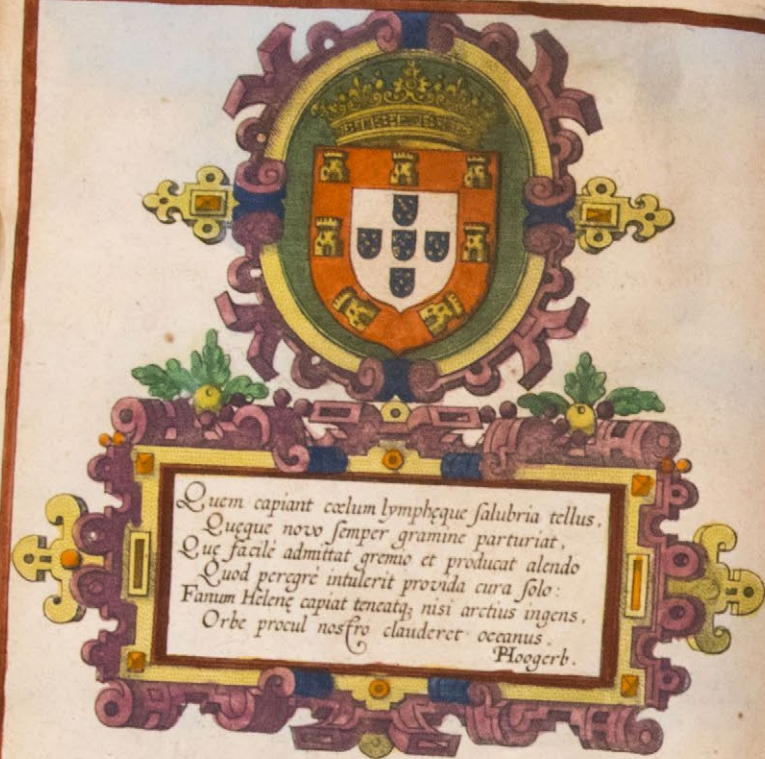 Quem capiant cœlum lymphęque salubria tellus,
Quęque novo semper gramine parturiat,
Quę facilè admittat gremio et producat alendo
Quod peregrè intulerit provida cura solo:
Fanum Helenę capiat teneatq; nisi arctius ingens,
Orbe procul nostro clauderet oceanus.
PHoogerb.